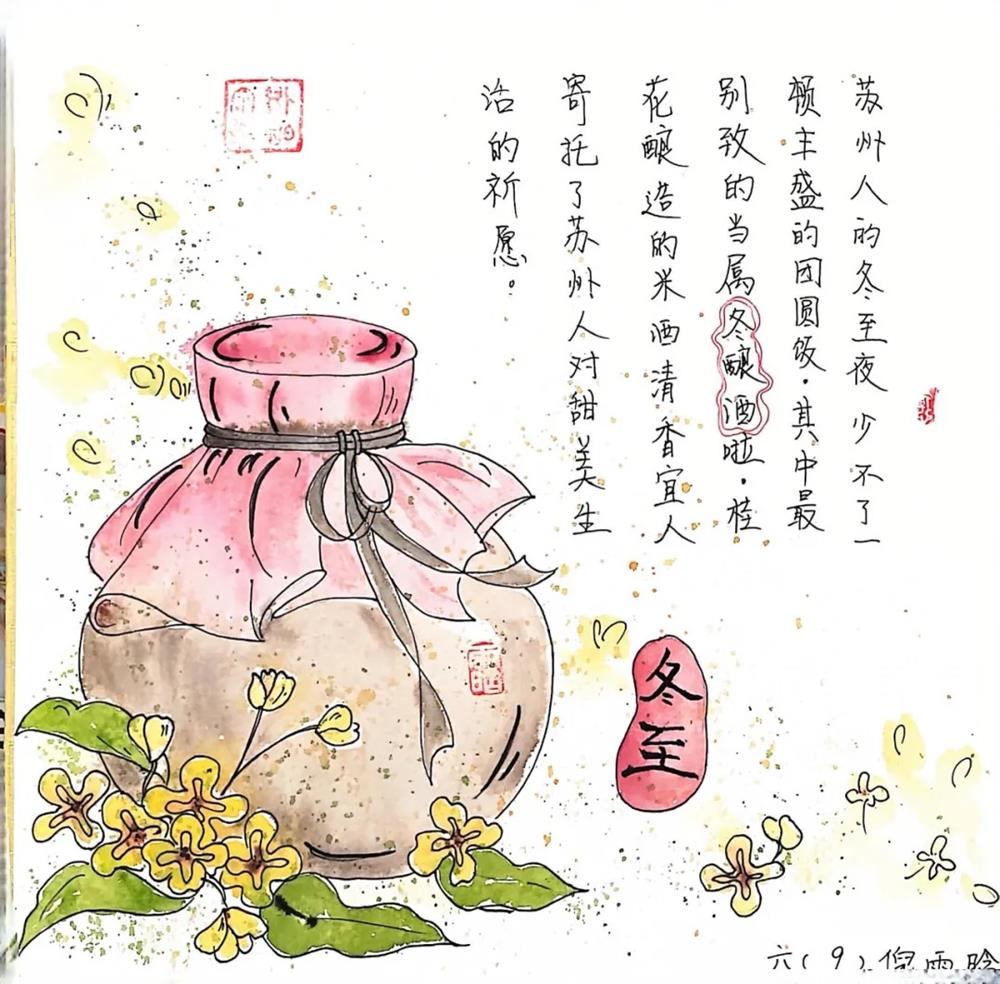 苏州人的冬至夜少不了一
顿丰盛的团圆饭·其中最
别致的当属冬酿酒啦·桂
花酿造的米酒清香宜人
寄托了苏州人对甜美生
活的祈愿。
冬至
六(9)倪雨晗